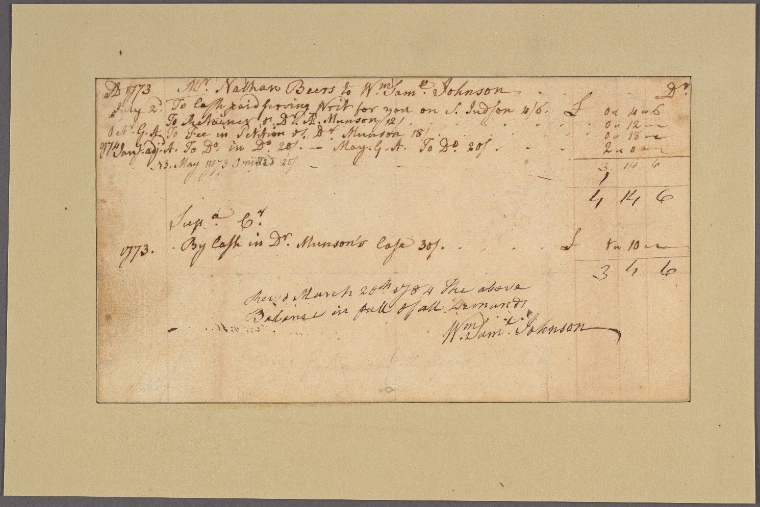 1773 Mr. Nathan Beers to Wm Saml Johnson Dr
July 2d. To Cash paid serving Writ for you on S. Judson 4/6. £ 0 " 4 " 6
To Retainer Dr. A. Munson 12/ 0 " 12 " –
Octr. G. A. To Fee in Petition vs. Dr. Munson 18/ 0 " 18 " –
1774 Jany. adjd. A. To Do. in Do. 20/ – May. G. A. To Do. 20/. 2 " 0 " –
3 14 6
May 1773 Omitted 20/ 1
4 14 6
Supra Cr
1773. By Cash in Dr. Munson's Case 30/. £ 1 " 10 " –
3 4 6
Recd. March 20th 1784 The above
Balance in full of all Demands
Wm. Saml. Johnson